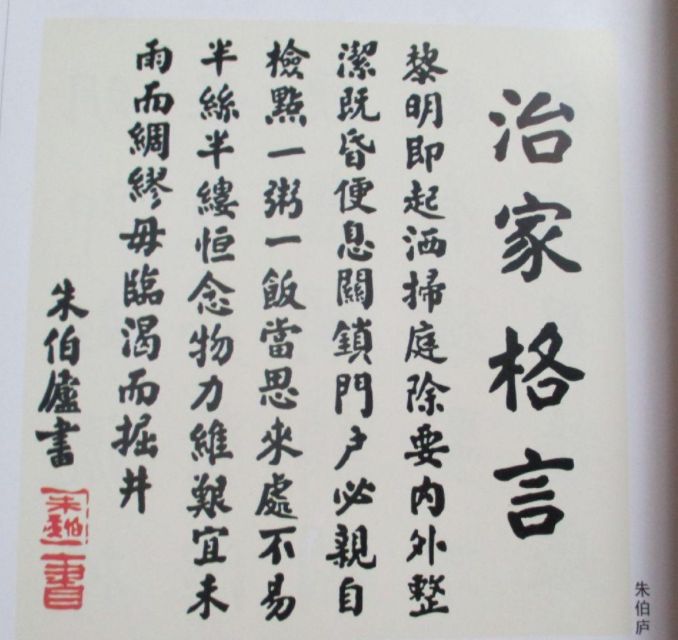 治家格言
黎明即起洒掃庭除要內外整
潔既昏便息關鎖門戶必親自
檢點一粥一飯當思來處不易
半絲半縷恒念物力維艱宜未
雨而綢繆毋臨渴而掘井
朱伯廬書
朱伯庐